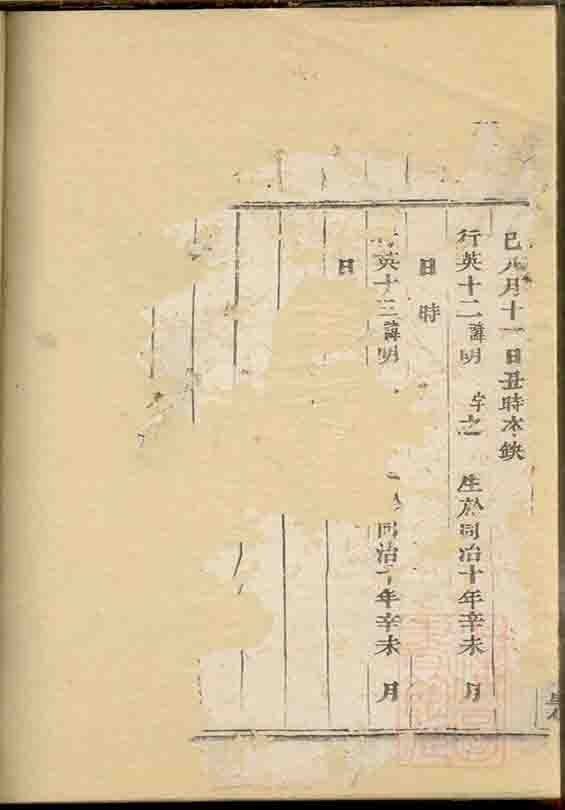 巳八月十一日丑時水缺
行英十二諱明 字之 生於同治十年辛未 月
日 時
英十三諱明 同治十年辛未 月
日